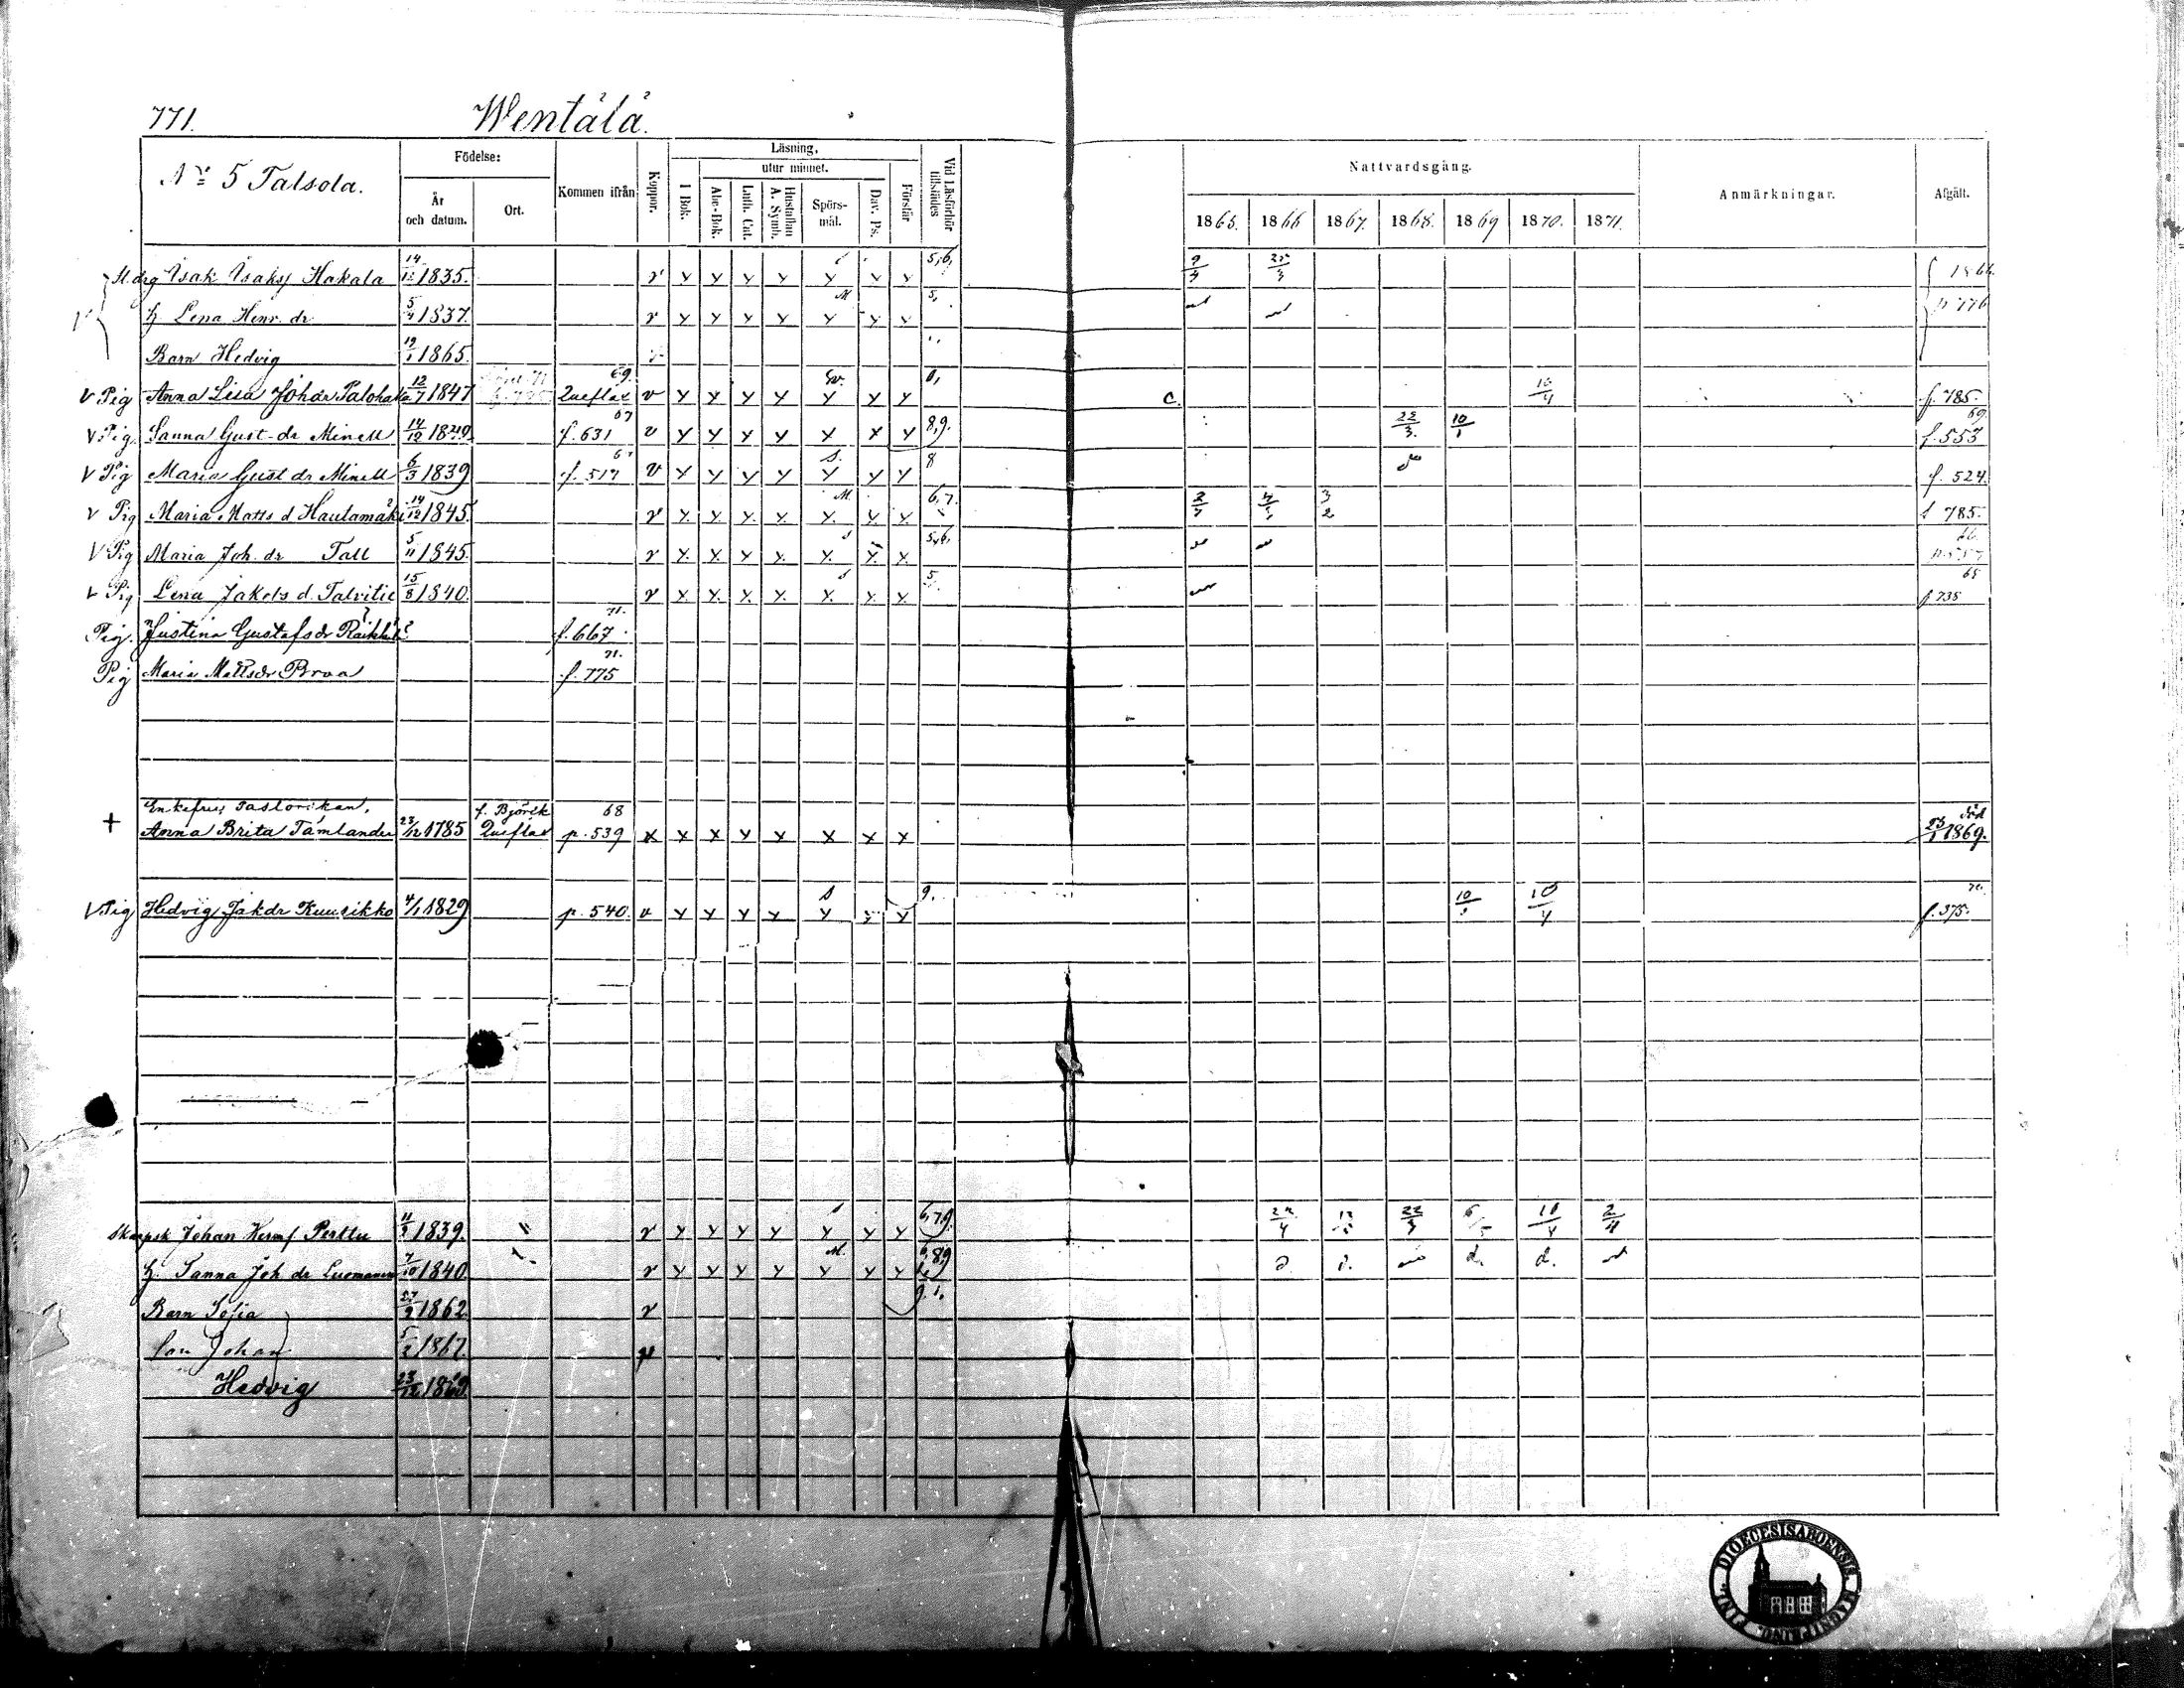 771. Wentälä.
No 5 Talsola. Födelse: Kommen ifrån Koppor. Läsning, Vid Läsförhör tillstädes Nattvardsgång. Anmärkningar. Afgått.
utur minnet.
År och datum. Ort. I Bok. Abc-Bok. Luth. Cat. Hustaflan A. Symb. Spörs-mål. Dav. Ps. Förstår 1865. 1866 1867. 1868. 1869 1870. 1871.
Isak Isaks Hakala 14/12 1835. v y y y y y y y 5,6, 1866
h Lena Henr. dr 5/4 1837. v y y y y M y y 5, p 776
Barn Hedvig 19/1 1865.
V Pig Anna Lisa Johdr Palohaka 12/7 1847 Queflax 69. v y y y y y y y c. 10/4 f. 785.
V Pig. Sanna Gust-dr Minell 14/12 1849 f. 631 67 v y y y y y y y 8,9. 22/3. 10/1 f. 553 69
V Pig Maria Gust dr Minell 6/3 1839 f. 517 v y y y y s. y y y 8 f. 524
v Pig Maria Matts d Hautamäki 14/12 1845. v y. y. y. y. M y. y. y. 6,7. 3/2 785.
V Pig Maria Joh. dr Tall 5/11 1845. v y. y. y. y. s y. y. y. 5,6,
v Pig Lena Jakobs d. Talvitie 15/8 1840. v y. y. y. y. s y. y. y. 5. 65 p 735
Pig. Justina Gustafsdr f. 667 71.
Pig Maria Mattsdr Prova f. 775 71.
+ Enkefru, Pastorskan, Anna Brita Tamlander 23/12 1785 f. Björck Queflax 68 p. 539 x x x y y x x x död 23/1 1869.
V. Pig Hedvig Jakdr Kuusikko 4/1 1829 p. 540. v y y y y s y y y 9. 10/4 70. f. 375.
Johan Herm f. Perttu 11/9 1839. v y y y y y y y 6,7,9. 22/4 22/3 10/4 2/4
h. Sanna Joh dr Luomanen 7/10 1840. v y y y y M. y y y 6,8,9 d. d.
Barn Sofia 27/9 1862. v
Son Johan 5/2 1867.
Hedvig 23/12 1869.
FINL. DIOECESIS ABOENSIS